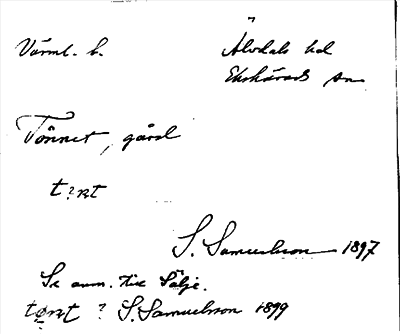 Värml. l.
Älvdals hd
Ekshärads sn
Tönnet, gård
t?nt
S. Samuelsson 1897
Se anm. till Sälje.
tønt ? S. Samuelsson 1899